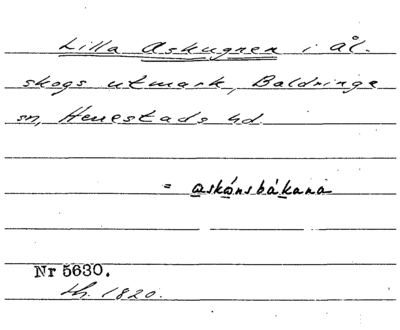 Lilla Askugnen i ål-
skogs utmark, Baldringe
sn, Herrestads hd.
= askónsbákana
Nr 5630.
Lh. 1820.